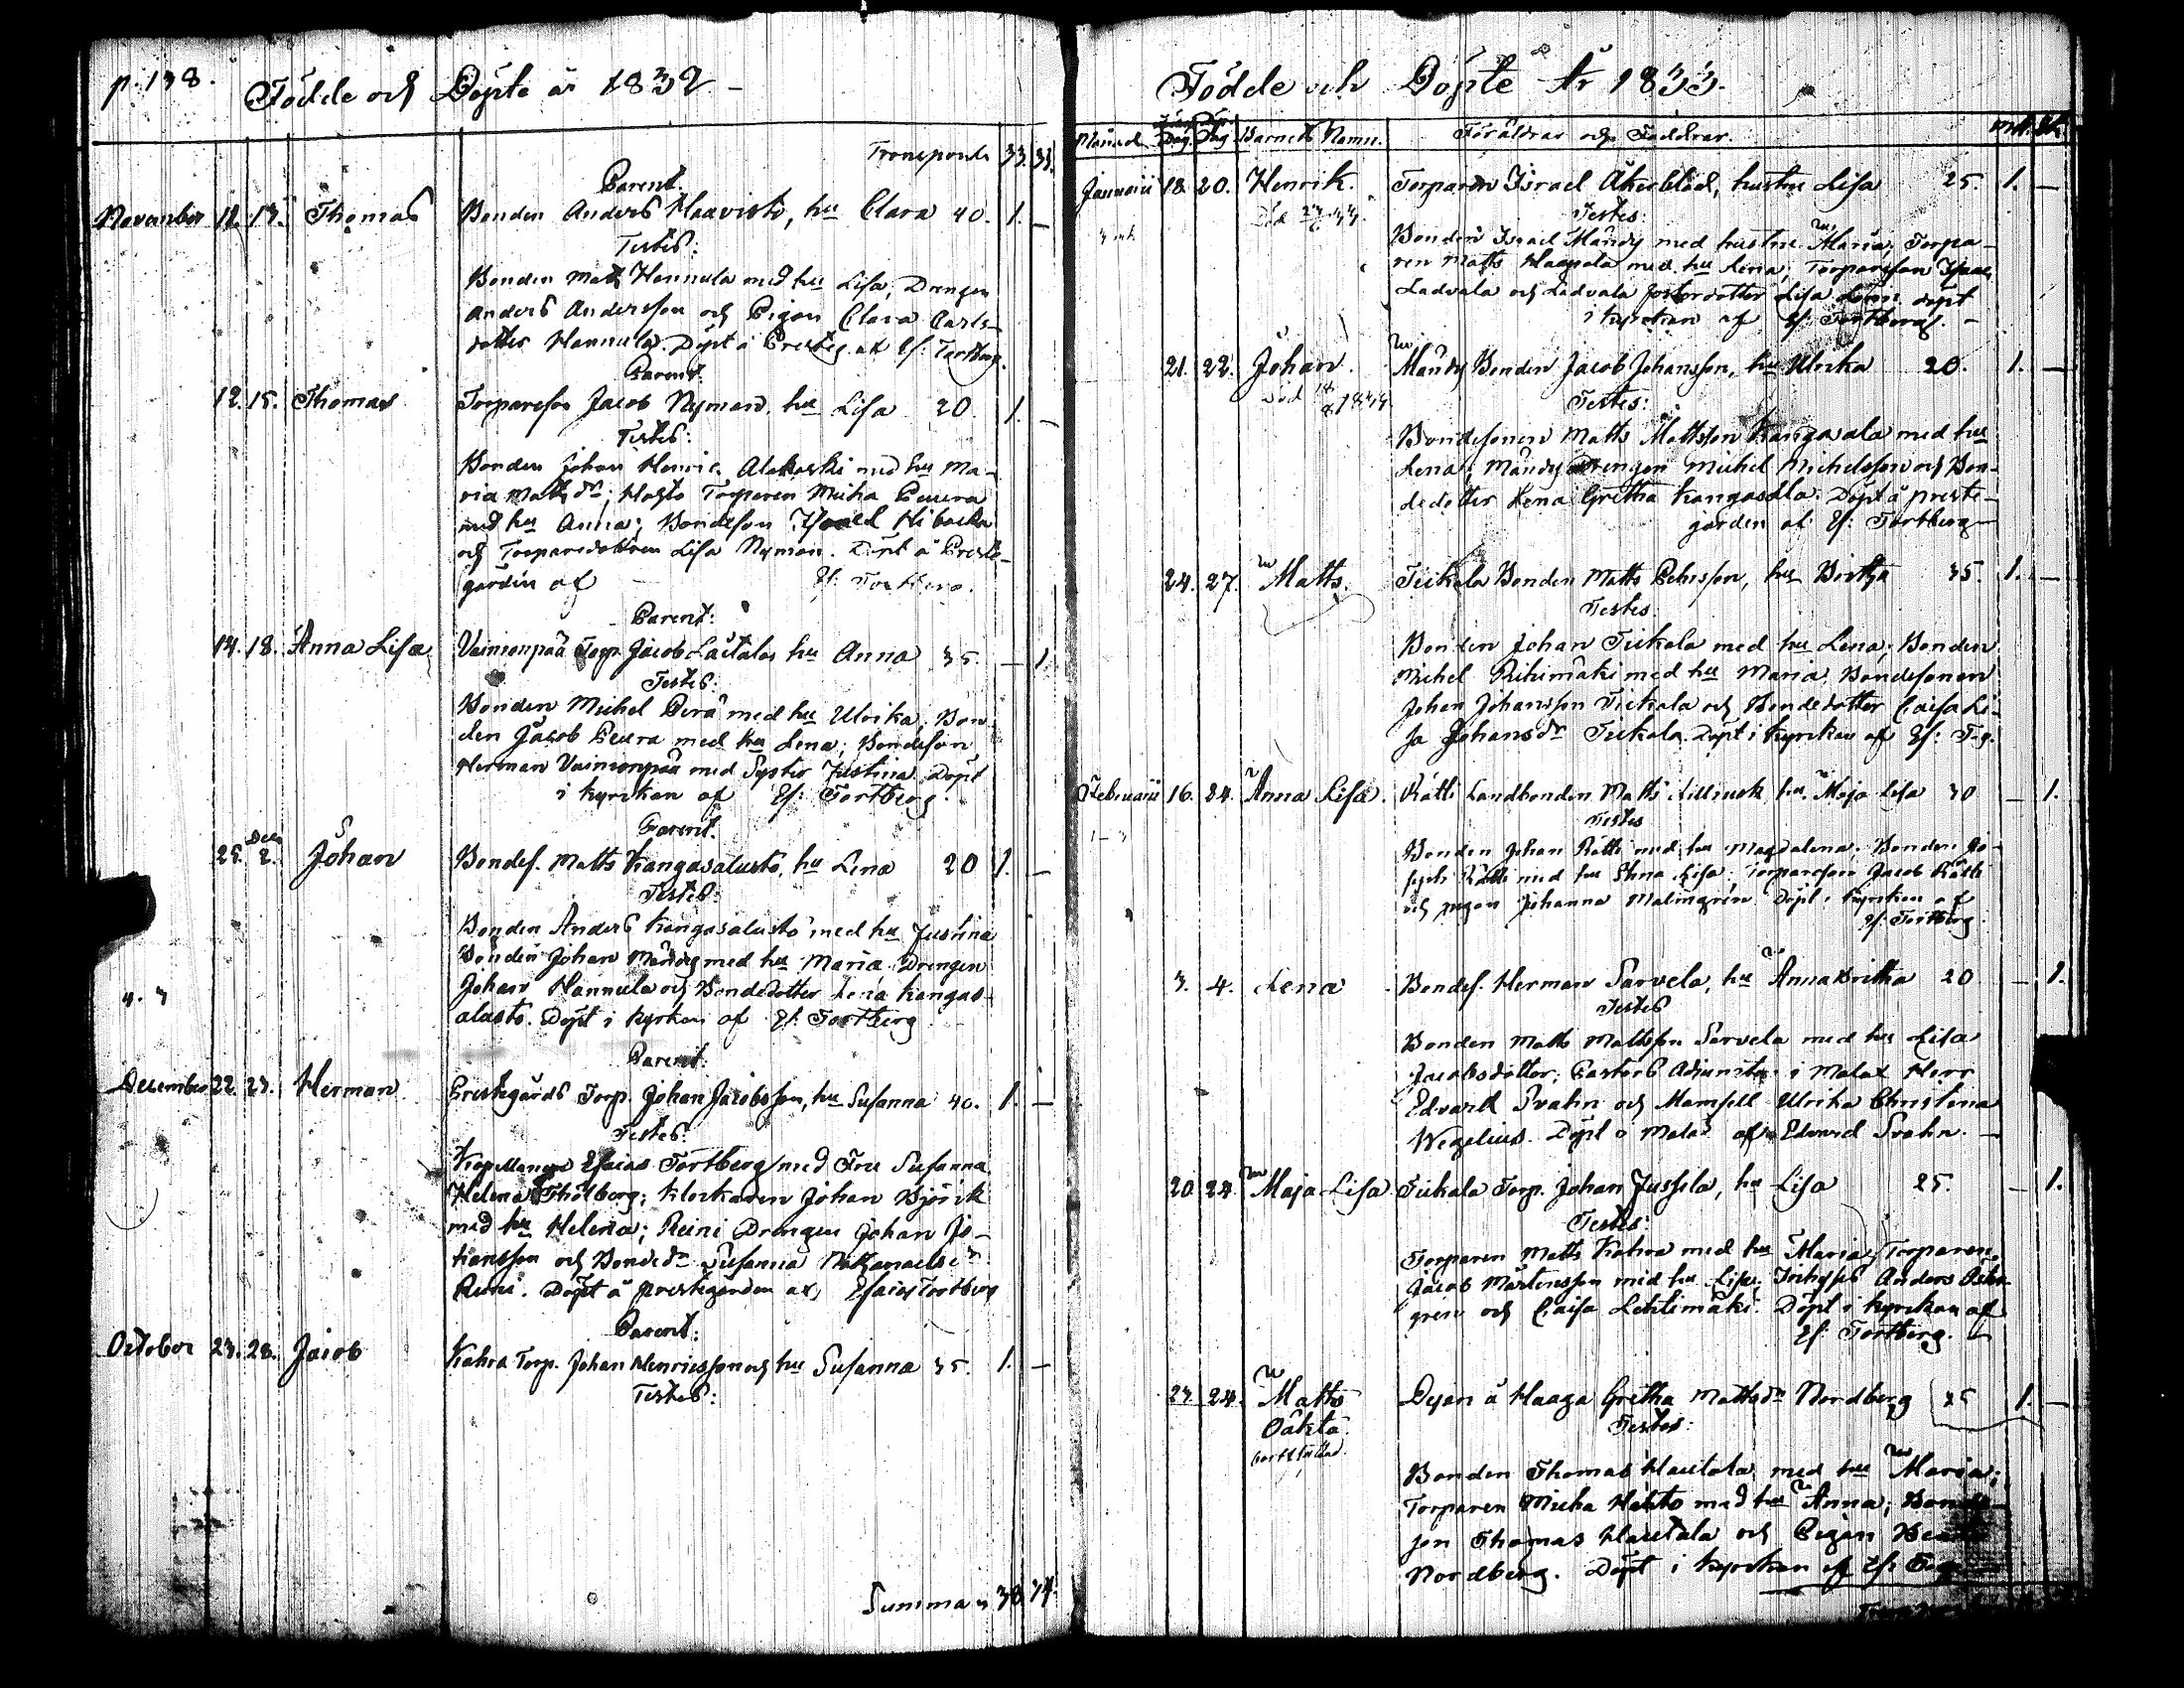 p. 138.
Födde och Döpte år 1832
Transport 33. 33.
Parent.
November 12. 13. Thomas Bonden Anders Haavisto, hu Clara 40. 1. —
Testes:
Bonden Matts Hannula med hu Lisa, Drengen
Anders Andersson och Pigan Clara Carls-
dotter Hannula. Döpt å Presteg. af Es: Tortberg.
Parent.
12. 15. Thomas Torpareson Jacob Nyman, hu Lisa 20. 1. —
Testes:
Bonden Johan Henric Alakoski med hu Ma-
ria Matts dr; Torparen Micha Peura
med hu Anna; Bondeson
och Torparedottren Lisa Nyman. Döpt å Preste-
gården af Es: Tortberg.
Parent:
14. 18. Anna Lisa Vainionpää Torp. Jacob hu Anna 35. — 1.
Testes:
Bonden Michel Perä med hu Ulrika. Bon-
den Jacob Peura med hu Lena; Bondeson
Herman Vainionpää med Syster Justina. Döpt
i kyrckan af Es: Tortberg.
Parent.
25. Decb 2. Johan Bondes. Matts Kangasalusto, hu Lena 20 1. —
Testes:
Bonden Anders Kangasalusto med hu Justina
Bonden Johan Mändy med hu Maria. Drengen
Johan Hannula och Bondedotter Lena Kangas-
alusto. Döpt i kyrkan af Es: Tortberg
Parent:
December 22. 23. Herman Prestegårds Torp. Johan Jacobsson, hu Susanna 40. 1. —
Testes:
Esaias Tortberg med Fru Susanna
Helena; Klockaren Johan Björck
med hu Helena; Reini Drengen Johan Jo-
hansson och Bonde dr Susanna Nathanaels dr
Reini. Döpt å prestegården af, Esaias Tortberg
Parent:
October 23. 28. Jacob Kahra Torp. Johan Henricsson och hu Susanna 35. 1. —
Testes:
Summa 38 34.
Födde och Döpte År 1833.
Månad Dag. Dag Barnets Namn. Föräldrar och Faddrar.
Januarii 18. 20. Henrik. Torparen Israel Åkerblad, hustru Lisa 25. 1. —
Testes:
Bonden Israel Mändy med hustru Maria, Torpa-
ren Matts Haapala med hu Lena; Torpareson Isaac
Ladvala och Ladvala fosterdotter Lisa döpt
i kyrckan af Es: Tortberg. —
21. 22. Johan. Mändy Bonden Jacob Johansson, hu Ulrika 20. 1. —
Testes:
Bondesonen Matts Mattsson Kangasala med hu
Lena; Mändy Drengen Michel Michelsson och Bon-
dedotter Lena Gretha Kangasala. Döpt å preste-
gården af Es: Tortberg —
24. 27. Matts. Tiekala Bonden Matts Pehrsson, hu Britha 35. 1. —
Testes.
Bonden Johan Tiekala med hu Lena; Bonden
Michel Rihimäki med hu Maria. Bondesonen
Johan Johansson Tiekala och Bondedotter Caisa Li-
sa Johans dr Tiekala. Döpt i kyrckan af Es: T-g.
Februarii 16. 24. Anna Lisa. Rätti Landbonden Matts hu. Maja Lisa 30 — 1.
Testes
Bonden Johan Rätti med hu Magdalena; Bonden Jo-
seph Rätti med hu Stina Lisa; Torpareson Jacob Rätti
och pigan Johanna Malmgren. Döpt i kyrckan af
Es: Tortberg
3. 4. Lena Bondes. Herman Sarvela, hu Anna Britha 20. — 1.
Testes
Bonden Matts Mattsson Sarvela med hu Lisa
Jacobsdotter; Pastors Adjuncten i Malax Herr
Edvard Svahn och Mamsell Ulrika Christina
Wegelius. Döpt i Malax af Edvard Svahn. —
20 24. Maja Lisa Tiekala Torp. Johan Jussila, hu Lisa 25. — 1.
Testes:
Torparen Matts Kahra med hu Maria, Torparen
Jacob Mårtensson med hu Lisa; Anders Öster-
gren och Caisa Lehtimäki. Döpt i kyrckan af
Es: Tortberg.
23. 24. Matts
Oäkta.
Dejan å Haaga Gretha Matts dr Nordberg 25 1. —
Testes:
Bonden Thomas Hautala med hu Maria;
Torparen Micha Hahto med hu Anna; Bonde-
son Thomas Hautala och Pigan
Nordberg. Döpt i kyrckan af Es: